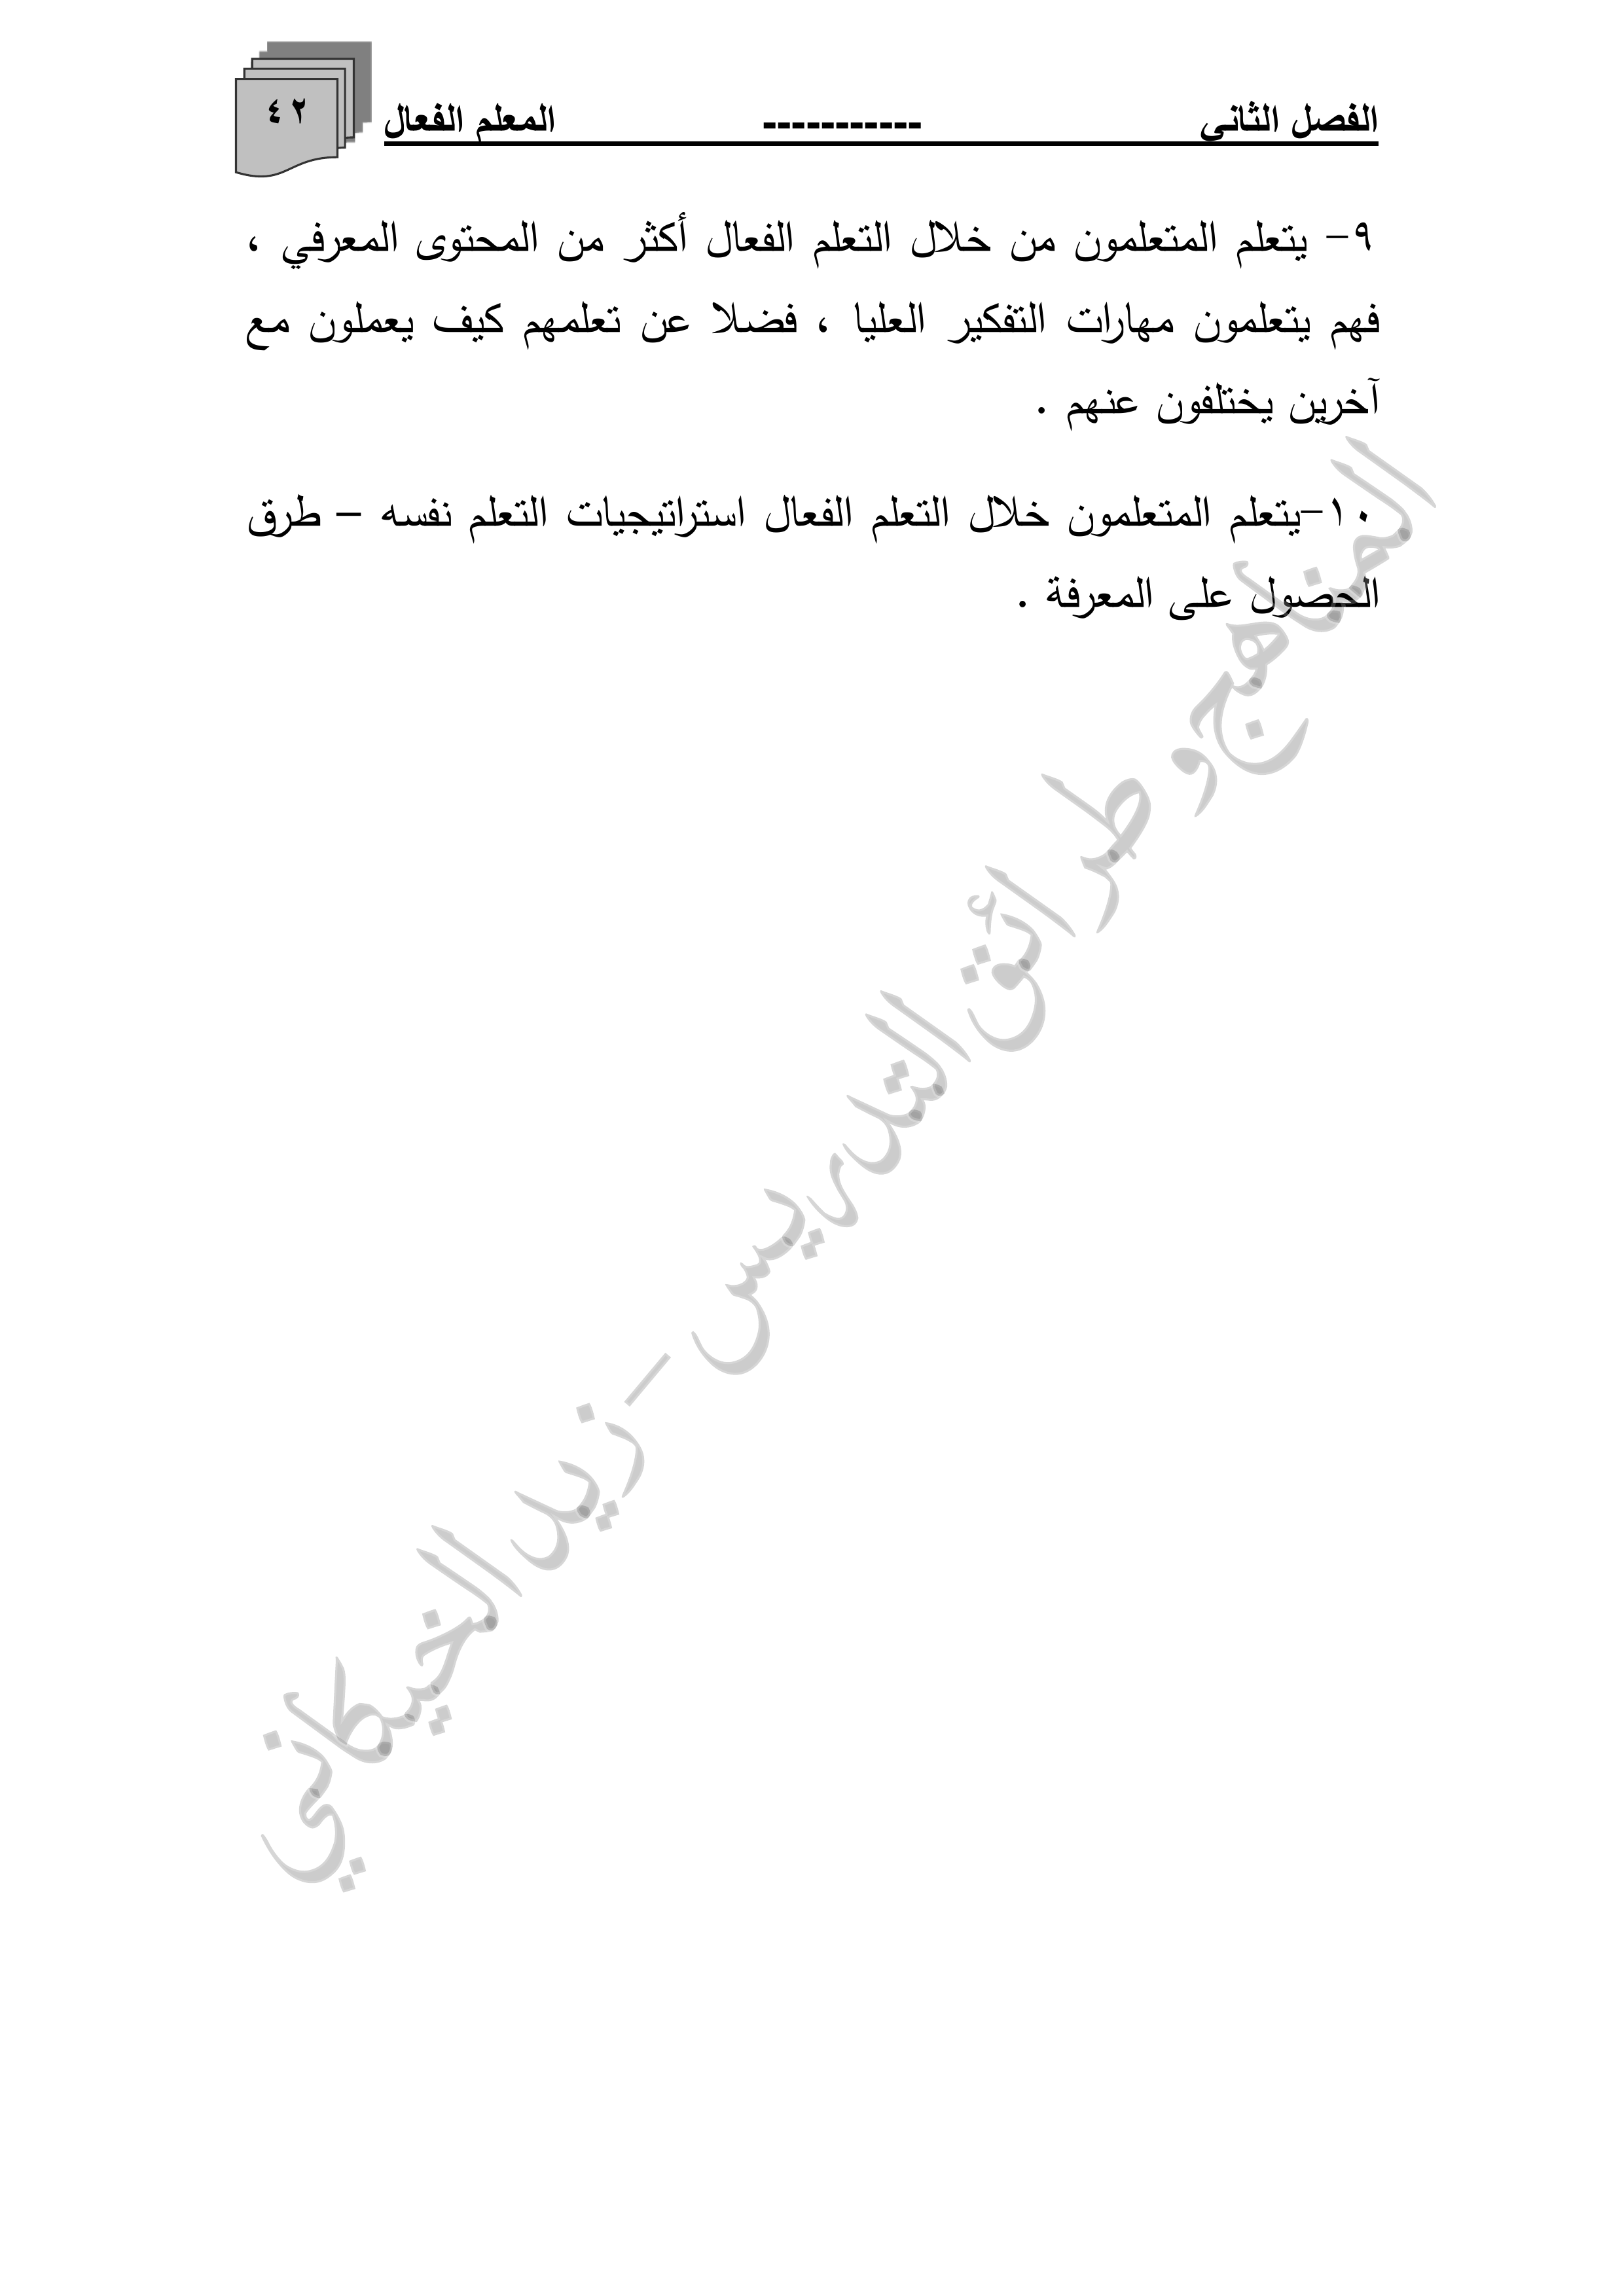 الفصل الثاني ----------- المعلم الفعال
٤٢
٩- يتعلم المتعلمون من خلال التعلم الفعال أكثر من المحتوى المعرفي ،
فهم يتعلمون مهارات التفكير العليا ، فضلا عن تعلمهم كيف يعملون مع
آخرين يختلفون عنهم .
١٠-يتعلم المتعلمون خلال التعلم الفعال استراتيجيات التعلم نفسه – طرق
الحصول على المعرفة .
المناهج و طرائق التدريس - زيد الخيكاني